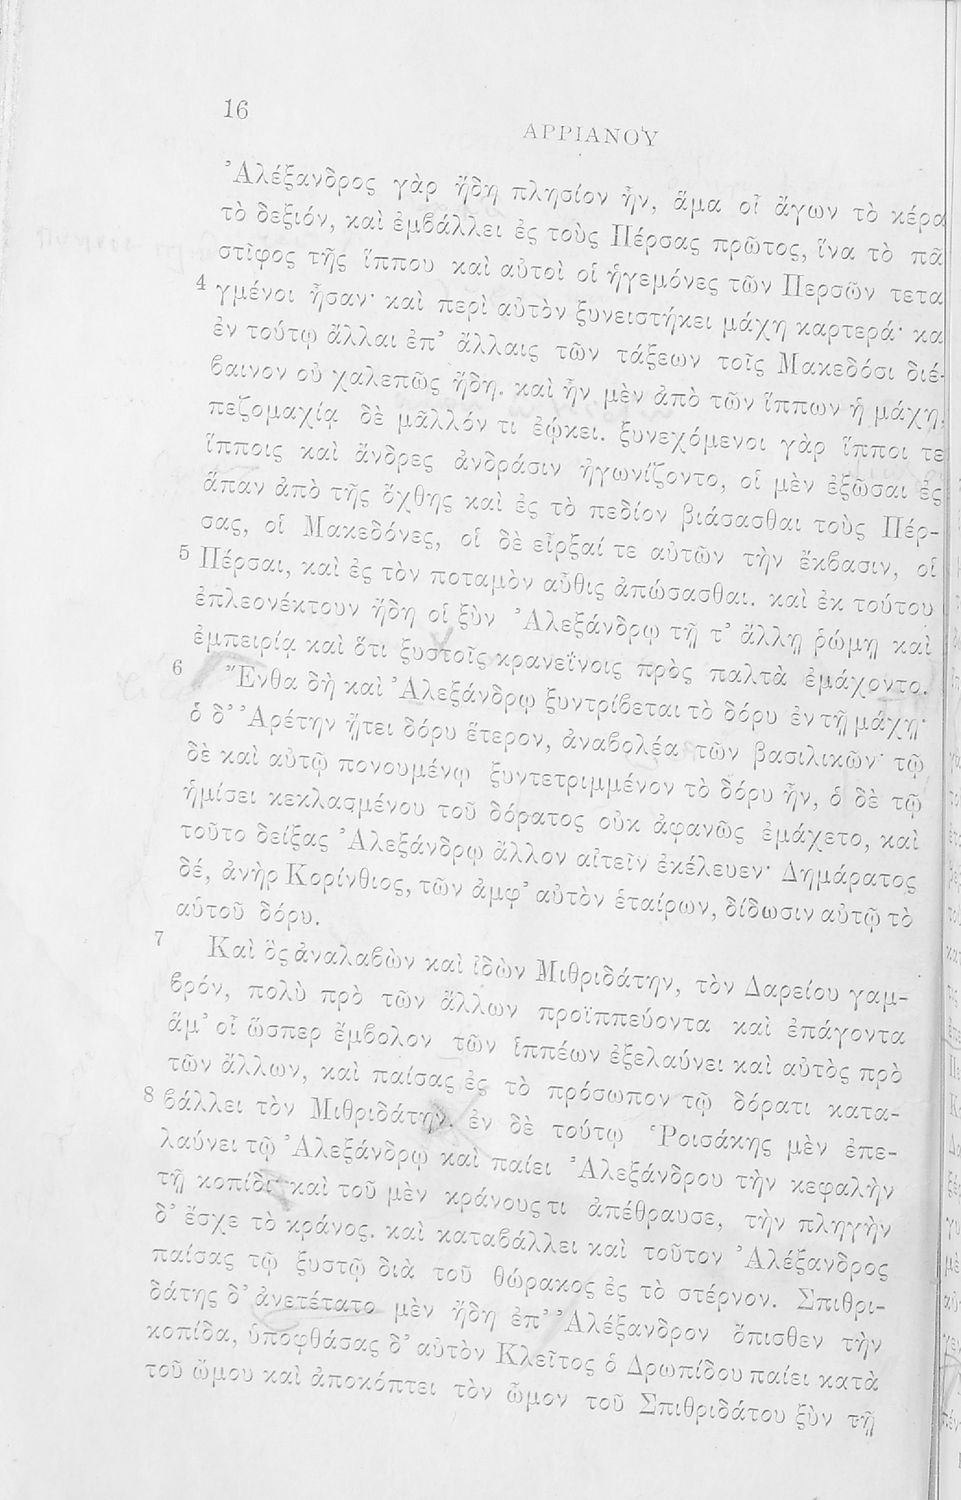 16
ΑΡΡΙΑΝΟΥ
Ἀλέξανδρος γὰρ ἤδη πλησίον ἦν, ἅμα οἷ ἄγων τὸ κέρα
τὸ δεξιόν, καὶ ἐμβάλλει ἐς τοὺς Πέρσας πρῶτος, ἵνα τὸ πᾶ
στῖφος τῆς ἵππου καὶ αὐτοὶ οἱ ἡγεμόνες τῶν Περσῶν τετα
4 γμένοι ἦσαν· καὶ περὶ αὐτὸν ξυνειστήκει μάχη καρτερά· κα
ἐν τούτῳ ἄλλαι ἐπ’ ἄλλαις τῶν τάξεων τοῖς Μακεδόσι διέ-
βαινον οὐ χαλεπῶς ἤδη. καὶ ἦν μὲν ἀπὸ τῶν ἵππων ἡ μάχη,
πεζομαχίᾳ δὲ μᾶλλόν τι ἐῴκει. ξυνεχόμενοι γὰρ ἵπποι τε
ἵπποις καὶ ἄνδρες ἀνδράσιν ἠγωνίζοντο, οἱ μὲν ἐξῶσαι ἐς
ἅπαν ἀπὸ τῆς ὄχθης καὶ ἐς τὸ πεδίον βιάσασθαι τοὺς Πέρ-
σας, οἱ Μακεδόνες, οἱ δὲ εἶρξαί τε αὐτῶν τὴν ἔκβασιν, οἱ
5 Πέρσαι, καὶ ἐς τὸν ποταμὸν αὖθις ἀπώσασθαι. καὶ ἐκ τούτου
ἐπλεονέκτουν ἤδη οἱ ξὺν Ἀλεξάνδρῳ τῇ τ’ ἄλλῃ ῥώμῃ καὶ
ἐμπειρίᾳ καὶ ὅτι ξυστοῖς κρανεΐνοις πρὸς παλτὰ ἐμάχοντο.
6 Ἔνθα δὴ καὶ Ἀλεξάνδρῳ ξυντρίβεται τὸ δόρυ ἐν τῇ μάχῃ·
ὁ δ’ Ἀρέτην ᾔτει δόρυ ἕτερον, ἀναβολέα τῶν βασιλικῶν· τῷ
δὲ καὶ αὐτῷ πονουμένῳ ξυντετριμμένον τὸ δόρυ ἦν, ὁ δὲ τῷ
ἡμίσει κεκλασμένου τοῦ δόρατος οὐκ ἀφανῶς ἐμάχετο, καὶ
τοῦτο δείξας Ἀλεξάνδρῳ ἄλλον αἰτεῖν ἐκέλευεν· Δημάρατος
δέ, ἀνὴρ Κορίνθιος, τῶν ἀμφ’ αὐτὸν ἑταίρων, δίδωσιν αὐτῷ τὸ
αὑτοῦ δόρυ.
7 Καὶ ὃς ἀναλαβὼν καὶ ἰδὼν Μιθριδάτην, τὸν Δαρείου γαμ-
βρόν, πολὺ πρὸ τῶν ἄλλων προϊππεύοντα καὶ ἐπάγοντα
ἅμ’ οἷ ὥσπερ ἔμβολον τῶν ἱππέων ἐξελαύνει καὶ αὐτὸς πρὸ
τῶν ἄλλων, καὶ παίσας ἐς τὸ πρόσωπον τῷ δόρατι κατα-
8 βάλλει τὸν Μιθριδάτην. ἐν δὲ τούτῳ Ῥοισάκης μὲν ἐπε-
λαύνει τῷ Ἀλεξάνδρῳ καὶ παίει Ἀλεξάνδρου τὴν κεφαλὴν
τῇ κοπίδι· καὶ τοῦ μὲν κράνους τι ἀπέθραυσε, τὴν πληγὴν
δ’ ἔσχε τὸ κράνος. καὶ καταβάλλει καὶ τοῦτον Ἀλέξανδρος
παίσας τῷ ξυστῷ διὰ τοῦ θώρακος ἐς τὸ στέρνον. Σπιθρι-
δάτης δ’ ἀνετέτατο μὲν ἤδη ἐπ’ Ἀλέξανδρον ὄπισθεν τὴν
κοπίδα, ὑποφθάσας δ’ αὐτὸν Κλεῖτος ὁ Δρωπίδου παίει κατὰ
τοῦ ὤμου καὶ ἀποκόπτει τὸν ὦμον τοῦ Σπιθριδάτου ξὺν τῇ